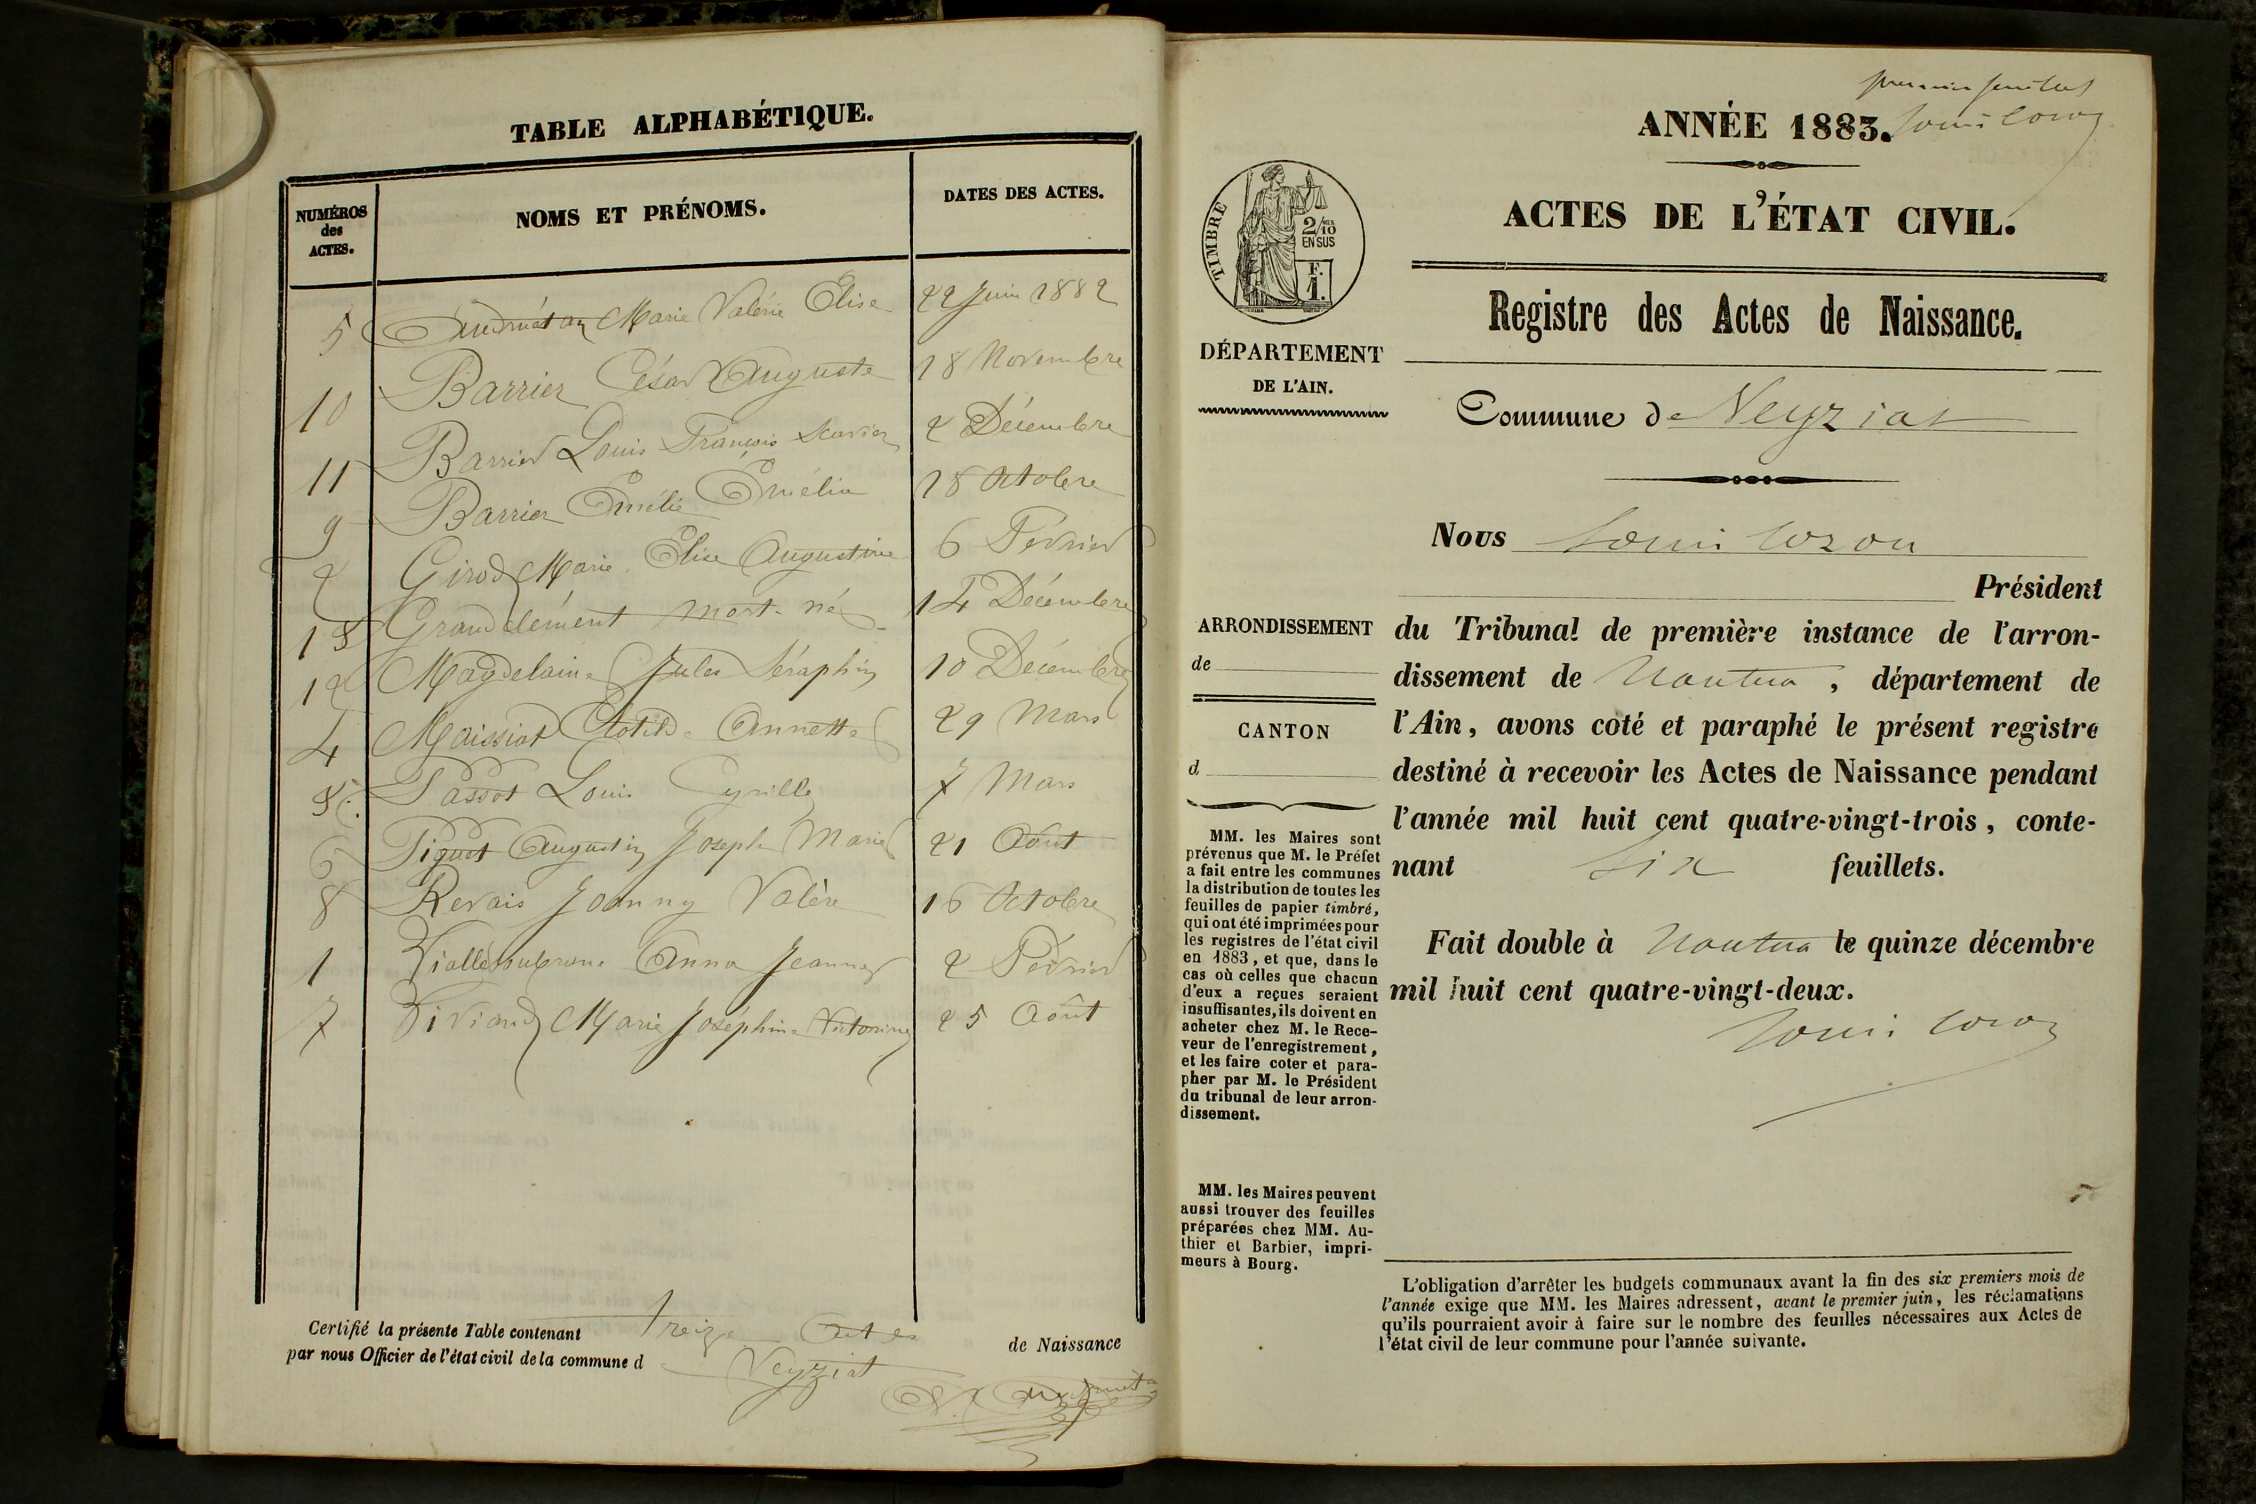 TABLE ALPHABÉTIQUE.
NUMÉROS
des
ACTES.
NOMS ET PRÉNOMS.
DATES DES ACTES.
5 Marie Valérie Élise 22 Juin 1882
10 Barrier César Auguste 18 Novembre
11 Barrier Louis François Xavier 2 Décembre
9 Barrier Émélie 18 Octobre
2 Girod Marie Élise Augustine 6 Février
13 Grandclément mort-né 14 Décembre
12 Magdelaine Jules Séraphin 10 Décembre
4 Maissiat Clotilde Annette 29 Mars
3 Passot Louis Cyrille 7 Mars
6 Piquet Augustin Joseph Marie 21 Août
8 Revais Joanny Valère 16 Octobre
1 Anna Jeanne 2 Février
7 Viviand Marie Joséphine 25 Août
Certifié la présente Table contenant treize Actes de Naissance
par nous Officier de l'état civil de la commune d Veyziat
premier feuillet
ANNÉE 1883.
ACTES DE L'ÉTAT CIVIL.
TIMBRE
2/10
EN SUS
F.
1.
Registre des Actes de Naissance.
DÉPARTEMENT
DE L'AIN.
Commune de Veyziat
Nous
Président
ARRONDISSEMENT
de
CANTON
d
du Tribunal de première instance de l'arron-
dissement de Nantua, département de
l'Ain, avons coté et paraphé le présent registre
destiné à recevoir les Actes de Naissance pendant
l'année mil huit cent quatre-vingt-trois, conte-
nant Six feuillets.
Fait double à Nantua le quinze décembre
mil huit cent quatre-vingt-deux.
MM. les Maires sont
prévenus que M. le Préfet
a fait entre les communes
la distribution de toutes les
feuilles de papier timbré,
qui ont été imprimées pour
les registres de l'état civil
en 1883, et que, dans le
cas où celles que chacun
d'eux a reçues seraient
insuffisantes, ils doivent en
acheter chez M. le Rece-
veur de l'enregistrement,
et les faire coter et para-
pher par M. le Président
du tribunal de leur arron-
dissement.
MM. les Maires peuvent
aussi trouver des feuilles
préparées chez MM. Au-
thier et Barbier, impri-
meurs à Bourg.
L'obligation d'arrêter les budgets communaux avant la fin des six premiers mois de
l'année exige que MM. les Maires adressent, avant le premier juin, les réclamations
qu'ils pourraient avoir à faire sur le nombre des feuilles nécessaires aux Actes de
l'état civil de leur commune pour l'année suivante.